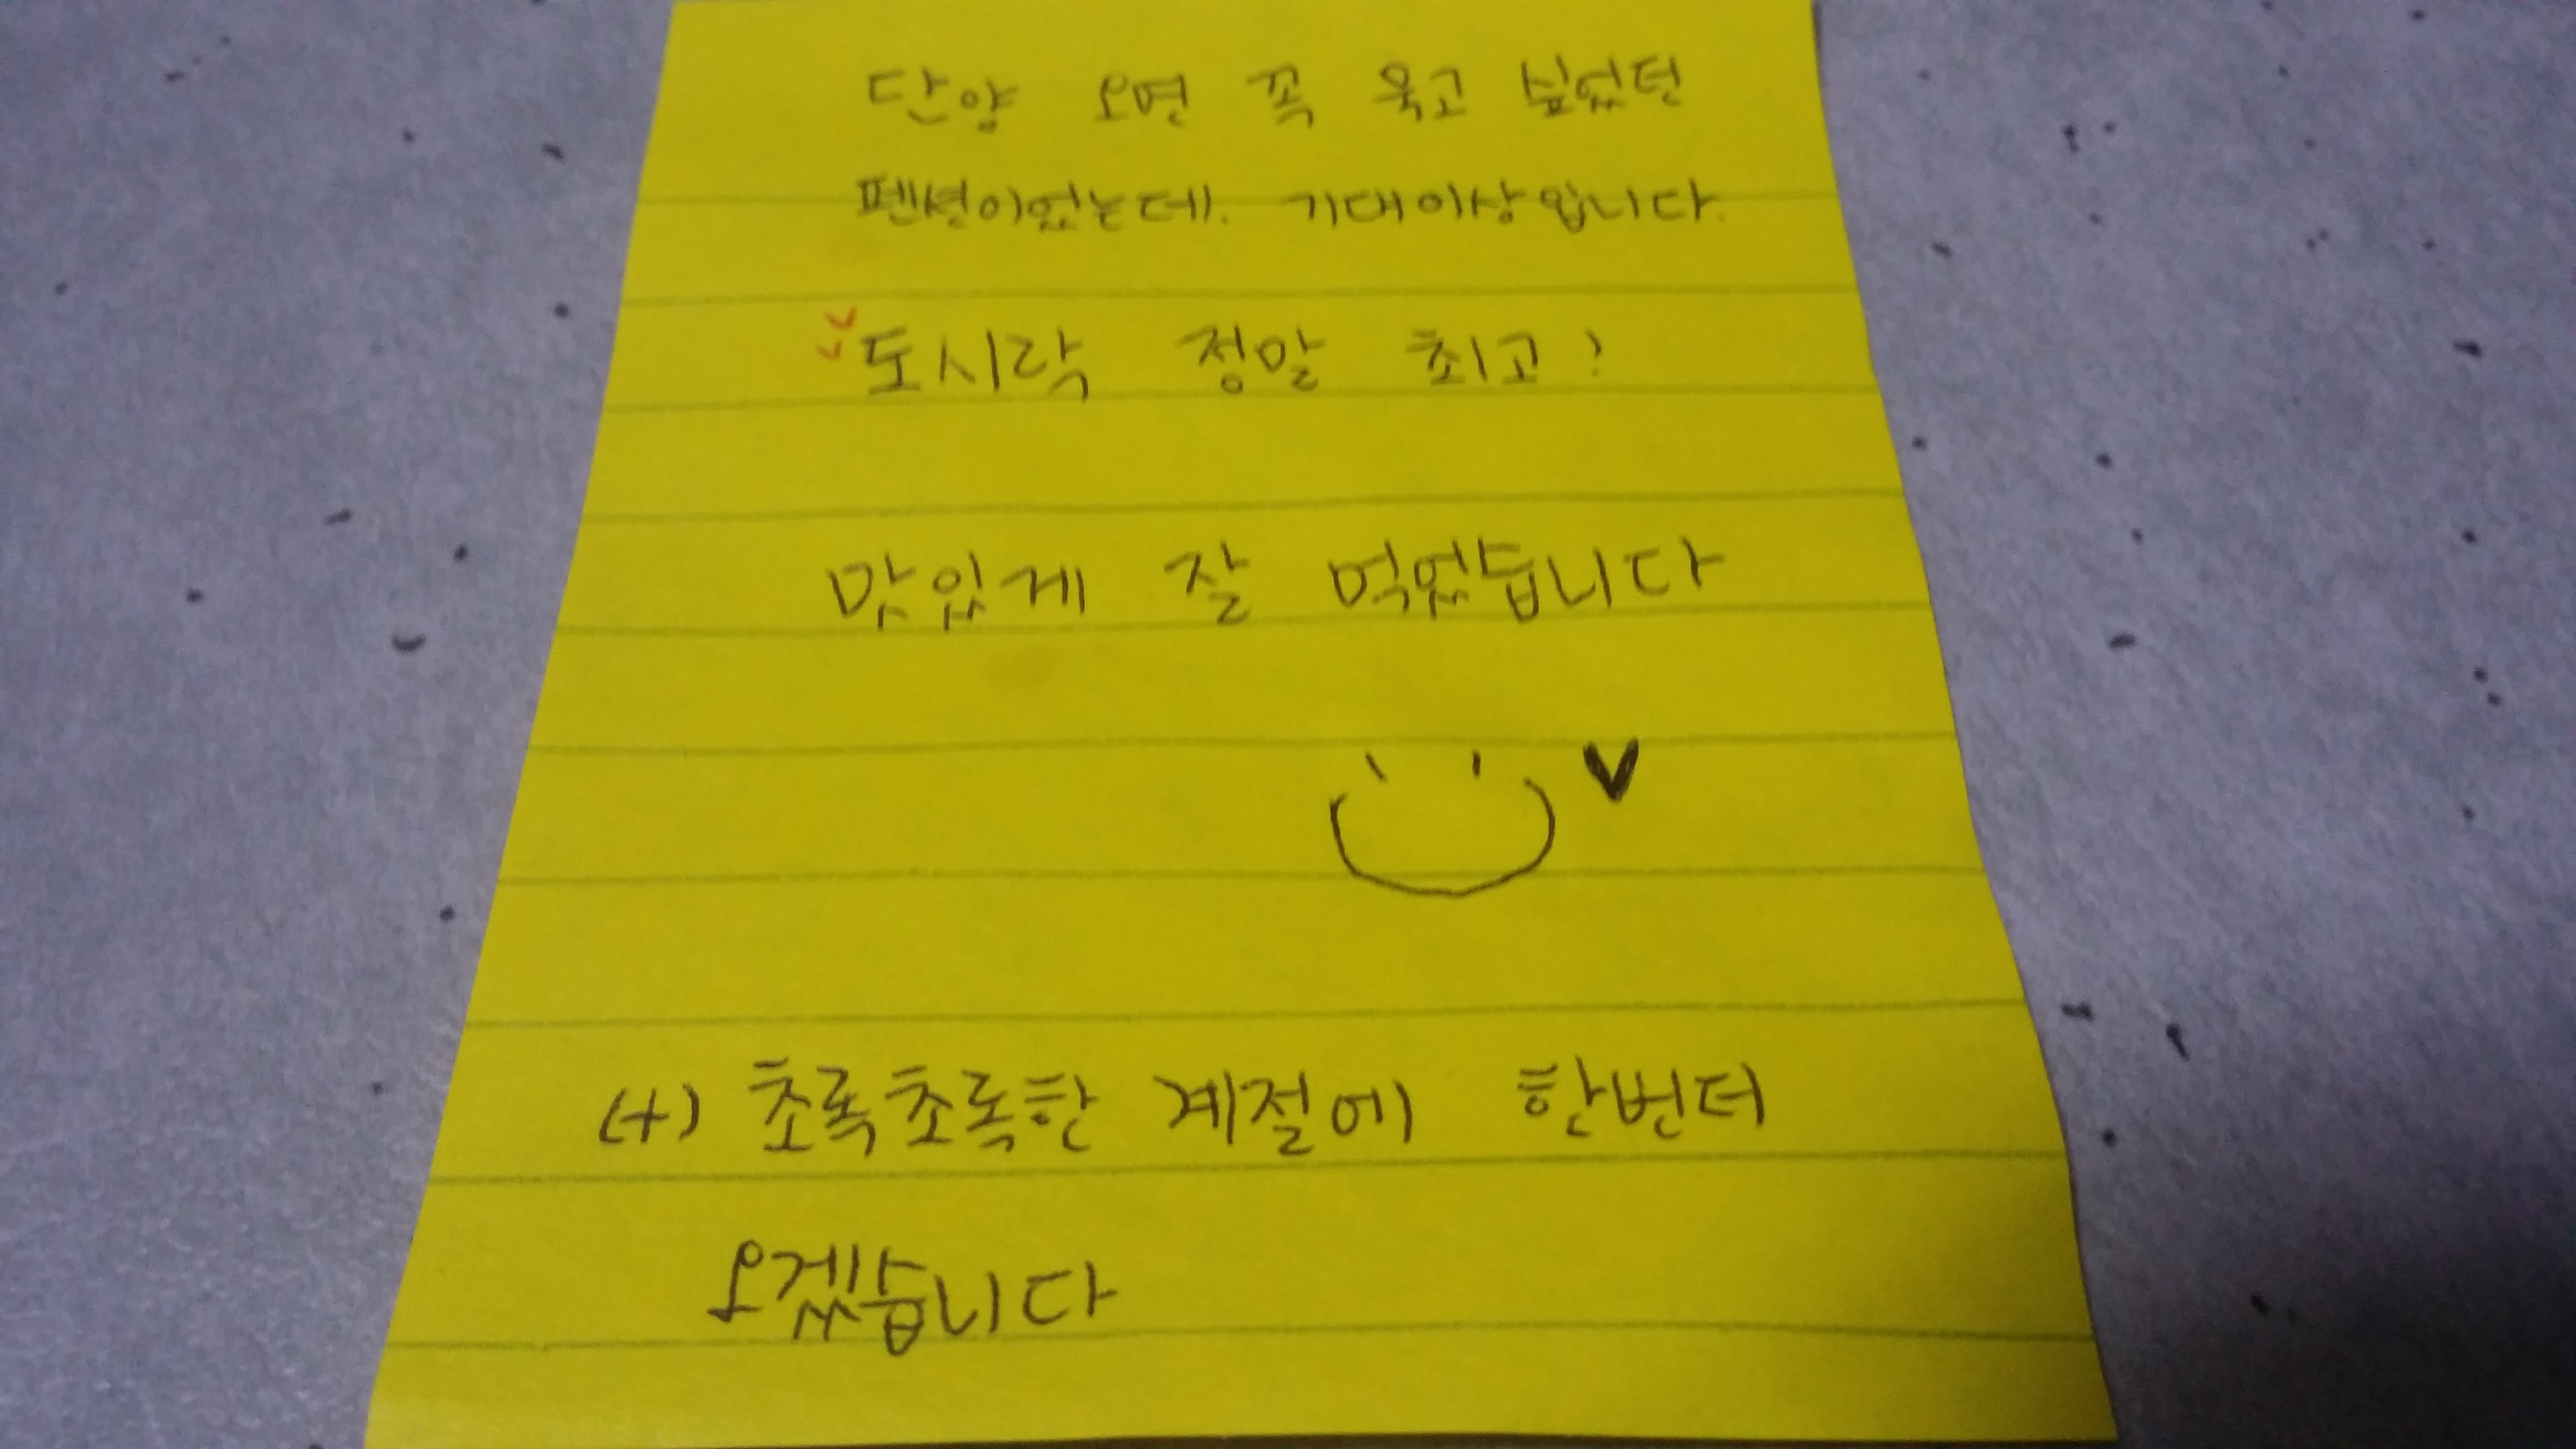 단양 오면 꼭 묵고 싶었던
펜션이었는데. 기대이상입니다.
도시락 정말 최고!
맛있게 잘 먹었습니다
(+) 초록초록한 계절에 한번더
오겠습니다